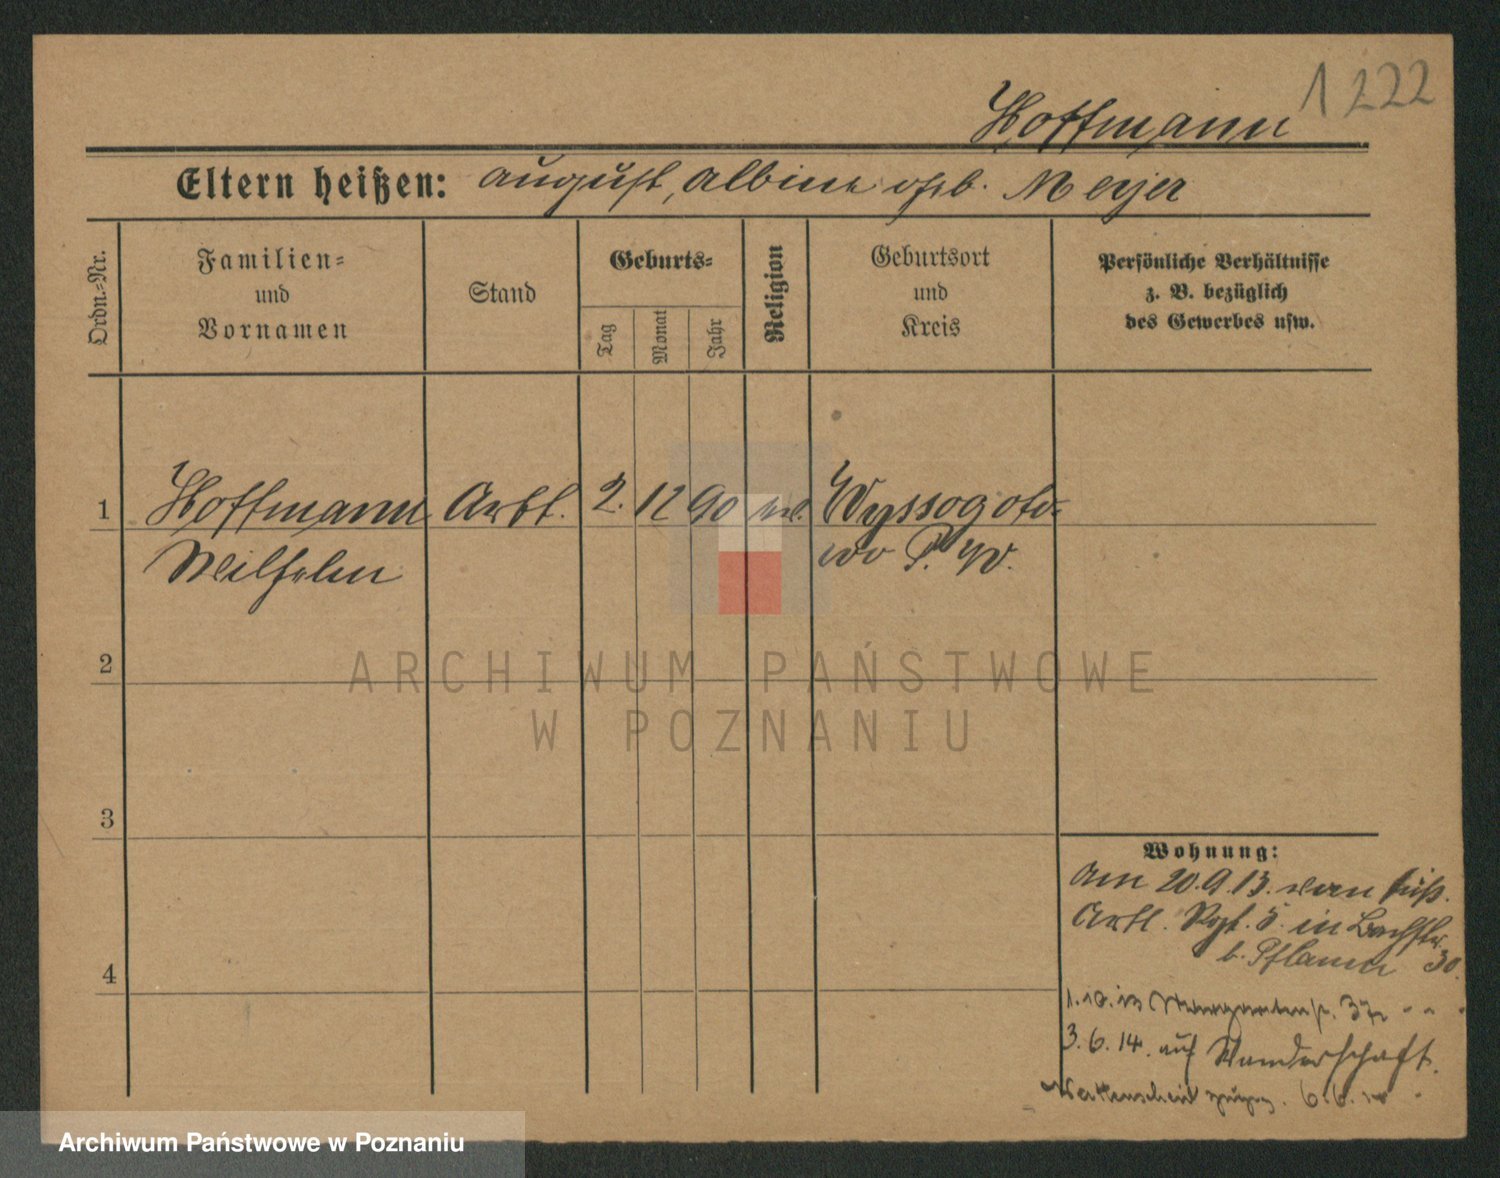 1222
Hoffmann
Eltern heißen: August, Albine geb. Meyer
Ordn.-Nr.
Familien-
und
Vornamen
Stand
Geburts-
Tag
Monat
Jahr
Religion
Geburtsort
und
Kreis
Persönliche Verhältnisse
z. B. bezüglich
des Gewerbes usw.
1 Hoffmann Arbt. 2. 12 90 Wyssogoto-
Wilhelm wo P. W.
2
3
4
Wohnung:
Am 20.9.13. vom
Artl. Rgt. 5. in
b. Pflaum 30.
1.10.13 37
3.6.14. auf Wanderschaft.
Wattenscheid 6.6.14
ARCHIWUM PAŃSTWOWE
W POZNANIU
Archiwum Państwowe w Poznaniu